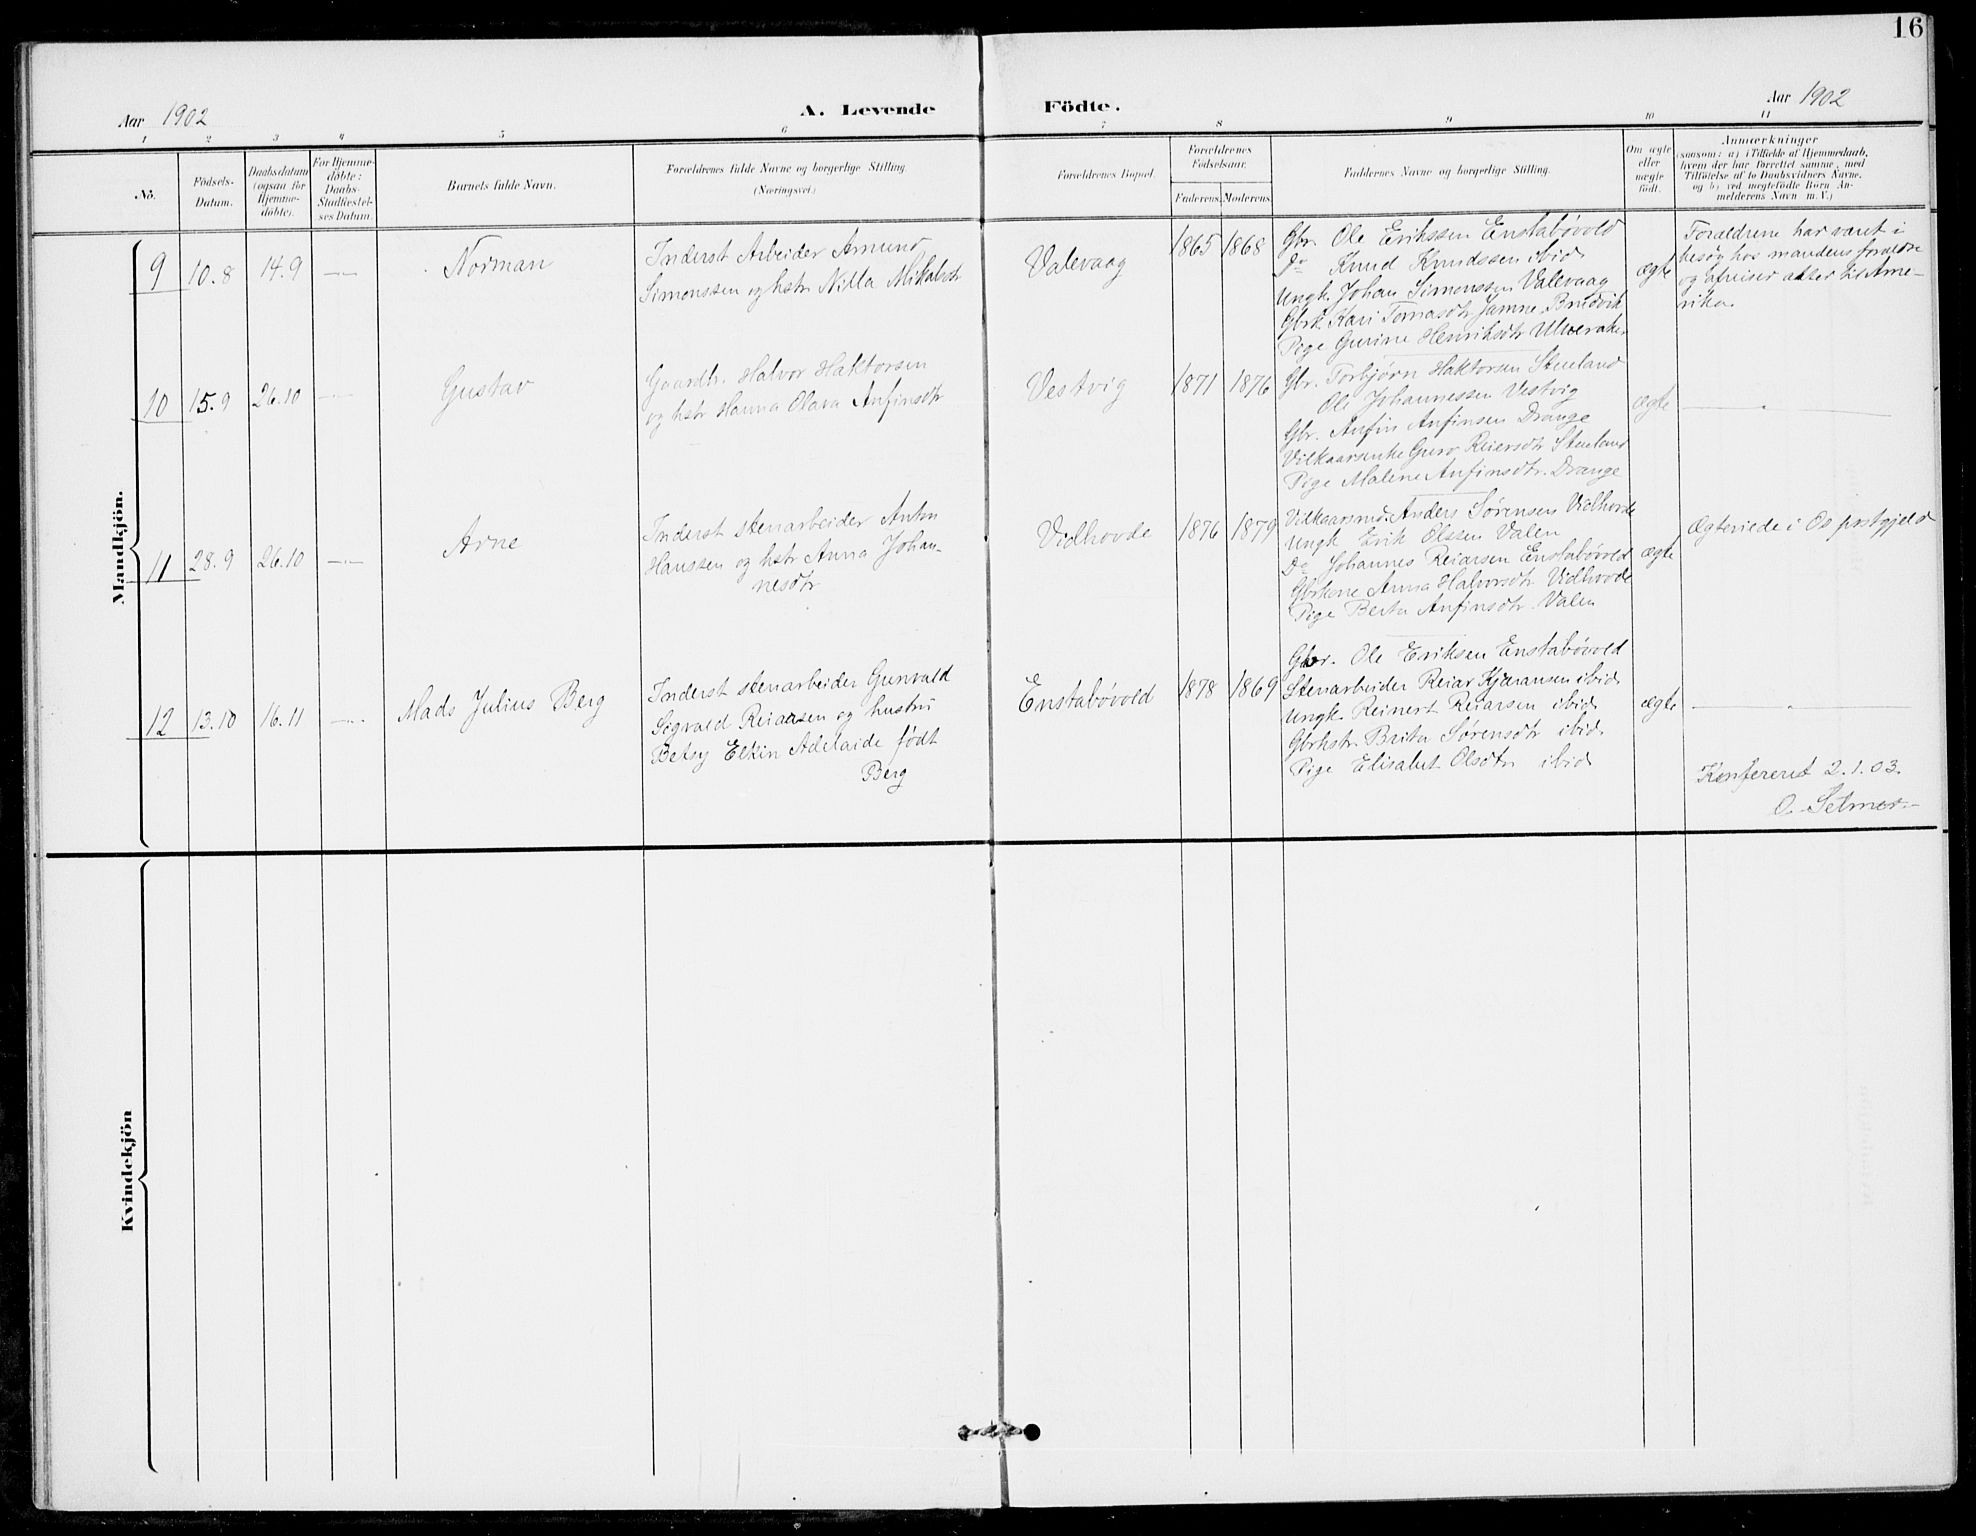 16
Aar 1902
A. Levende Födte.
Aar 1902
1 2 3 4 5 6 7 8 9 10 11
No.
Födsels-
Datum.
Daabsdatum
(ogsaa for
Hjemme-
döbte).
For Hjemme-
döbte:
Daabs-
Stadfæstel-
ses Datum.
Barnets fulde Navn.
Forældrenes fulde Navne og borgerlige Stilling
(Næringsvei.)
Forældrenes Bopæl.
Forældrenes
Födselsaar.
Faderens. Moderens.
Faddernes Navne og borgerlige Stilling.
Om ægte
eller
uægte
födt.
Anmærkninger
(saasom: a) i Tilfælde af Hjemmedaab,
hvem der har forrettet samme, med
Tilföielse af to Daabsvidners Navne,
og b) ved uægtefödte Börn An-
melderens Navn m. V.)
Mandkjön.
9
10.8
14.9
Norman
Inderst Arbeider Amund
Simonssen og hstr Nilla Mikalsdtr
Valevaag
1865 1868
Gbr. Ole Erikssen Enstabøvold
Do Knud Knudssen ibid
Ungk. Johan Simonssen Valevaag
Gbrk. Kari Tomasdtr Jamne Brudvik
Pige Gurine Henriksdtr Ulveraker
ægte
Forældrene har været i
besøg hos mandens forældre
og afreiser atter til Ame-
rika.
10
15.9
26.10
Gustav
Gaardbr. Halvor Haktorsen
og hstr Hanna Olava Anfinsdtr
Vestvig
1871 1876
Gbr. Torbjørn Haktorsen Stueland
Ole Johannessen Vestvig
Gbr. Anfin Anfinsen Drange
Vilkaarsenke Guro Reiersdtr Stueland
Pige Malene Anfinsdtr. Drange
ægte
11
28.9
26.10
Arne
Inderst stenarbeider Anton
Hanssen og hstr Anna Johan-
nesdtr
Vidhovde
1876 1879
Vilkaarsmd. Anders Sørensen Vidhovde
Ungk Erik Olssen Valen
Do Johannes Reiarsen Enstabøvold
Gbrkone Anna Halvorsdtr Vidhovde
Pige Berta Anfinsdtr. Valen
ægte
Ægteviede i Os prstgjeld
12
13.10
16.11
Mads Julius Berg
Inderst stenarbeider Gunvald
Sigvald Reiarsen og hustru
Betsy Elkin Adelaide født
Berg
Enstabøvold
1878 1869
Gbr. Ole Eriksen Enstabøvold
Stenarbeider Reiar Kjaransen ibid
Ungk. Reinert Reiarsen ibid
Gbrhstr. Brita Sørensdtr ibid.
Pige Elisabet Olsdtr ibid
ægte
Konfereret 2.1.03.
O. Selmer
Kvindekjön